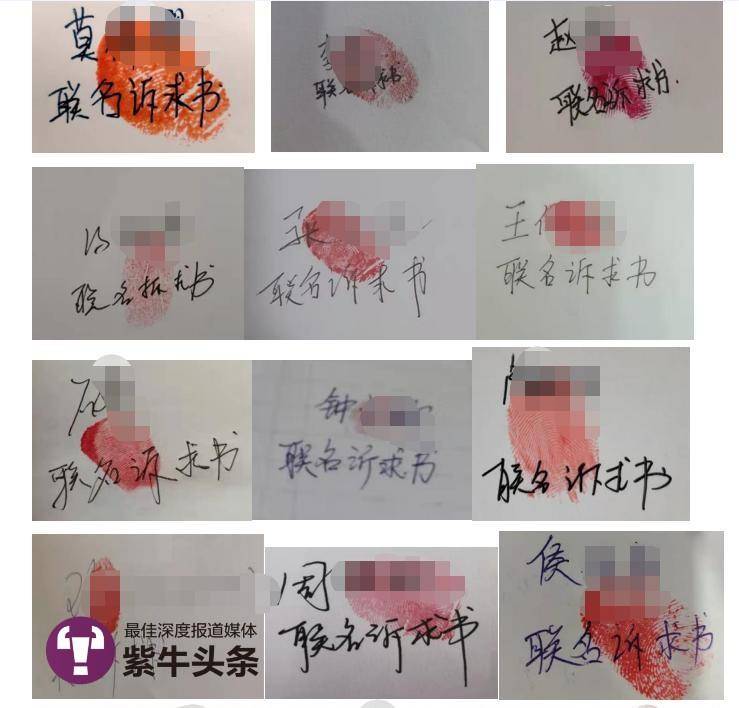 莫
联名诉求书
联名诉求书
赵
联名诉求书
冯
联名诉求书
张
联名诉求书
王
联名诉求书
联名诉求书
钟
联名诉求书
联名诉求书
最佳深度报道媒体
紫牛头条
周
联名诉求书
侯
联名诉求书